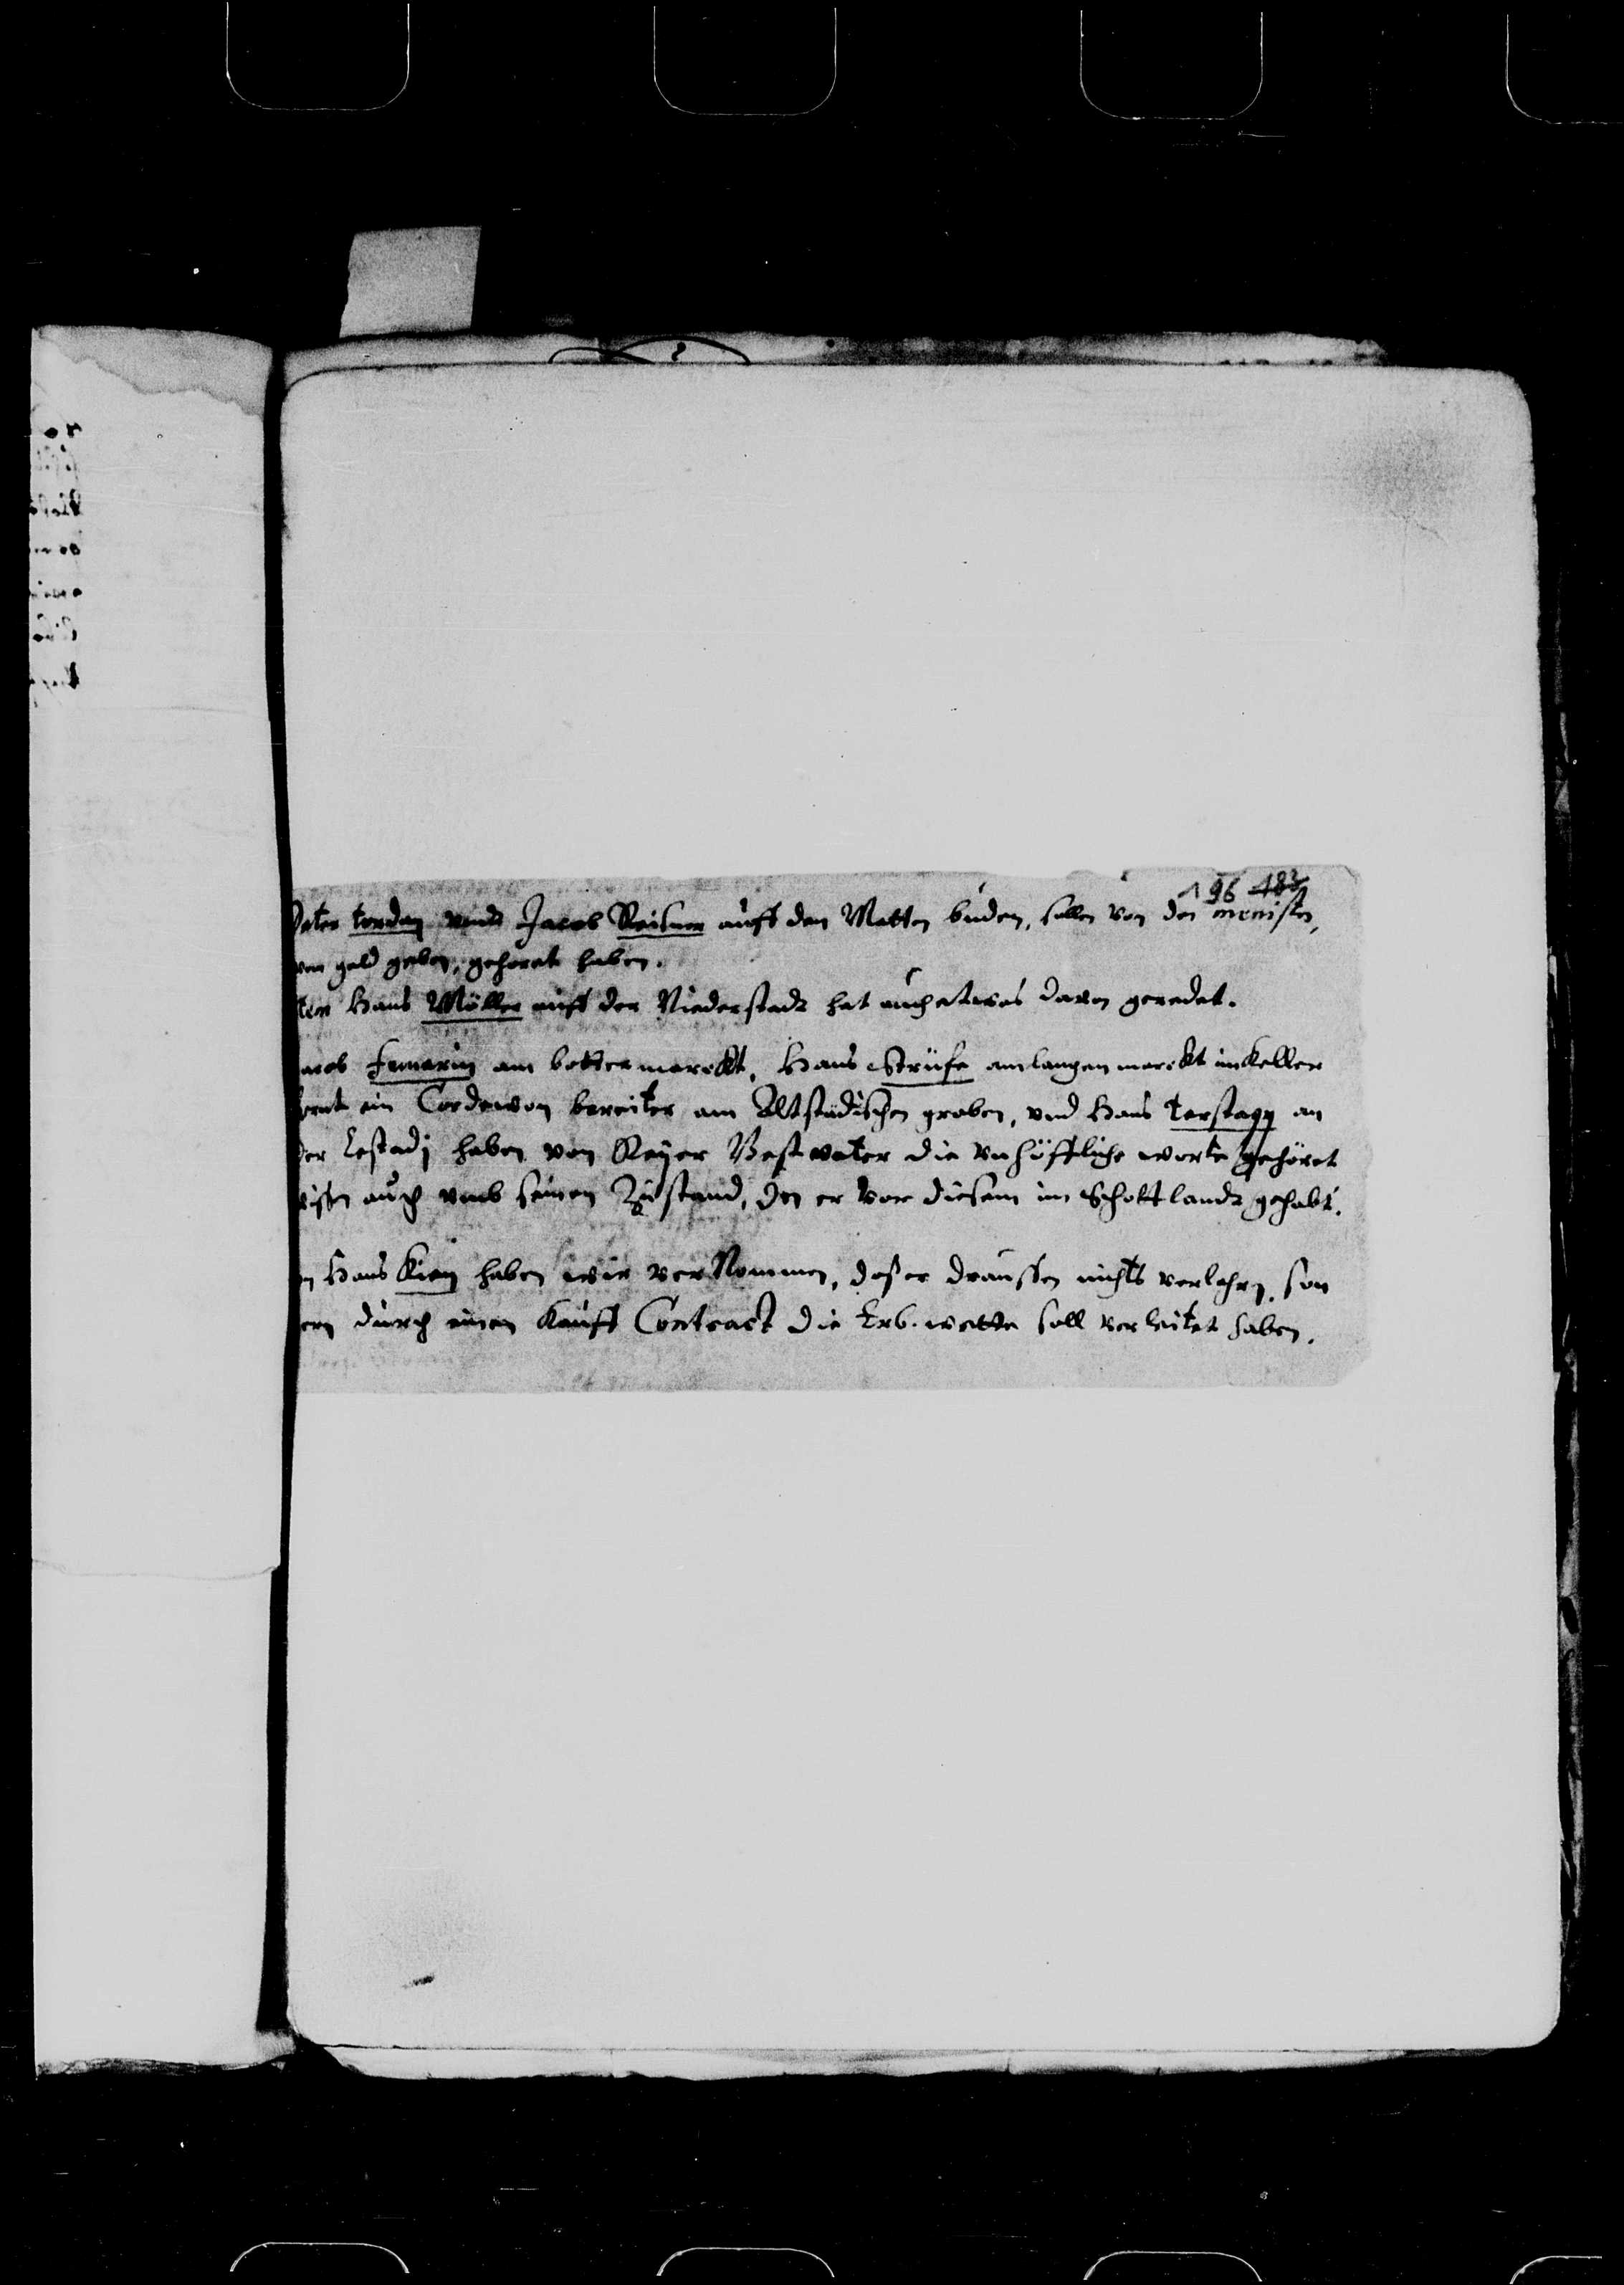 196 183
Peter torday vnd Jacob Reisner auff den Matten buden, sollen von den menisten,
von geld geben, gehöret haben.
tem Hans Möller auff der Niederstadt hat auch etwas davon geredet.
acob am bottermarckt, Hans Strüfe am langen marckt im Keller
ein Cordewon bereiter am Altstädischen graben, vnd Hans terstagg an
der Lestadj haben von Reyer Bestvater die vnhöffliche worte gehöret
wissen auch vmb seinen Zustand, den er vor diesem im Schottlandt gehabt.
n Hans Kien haben wir vernommen, daß er draussen nichts verlohrn, son
ern durch einen Kauff Contract die Erb. wette soll verleitet haben.